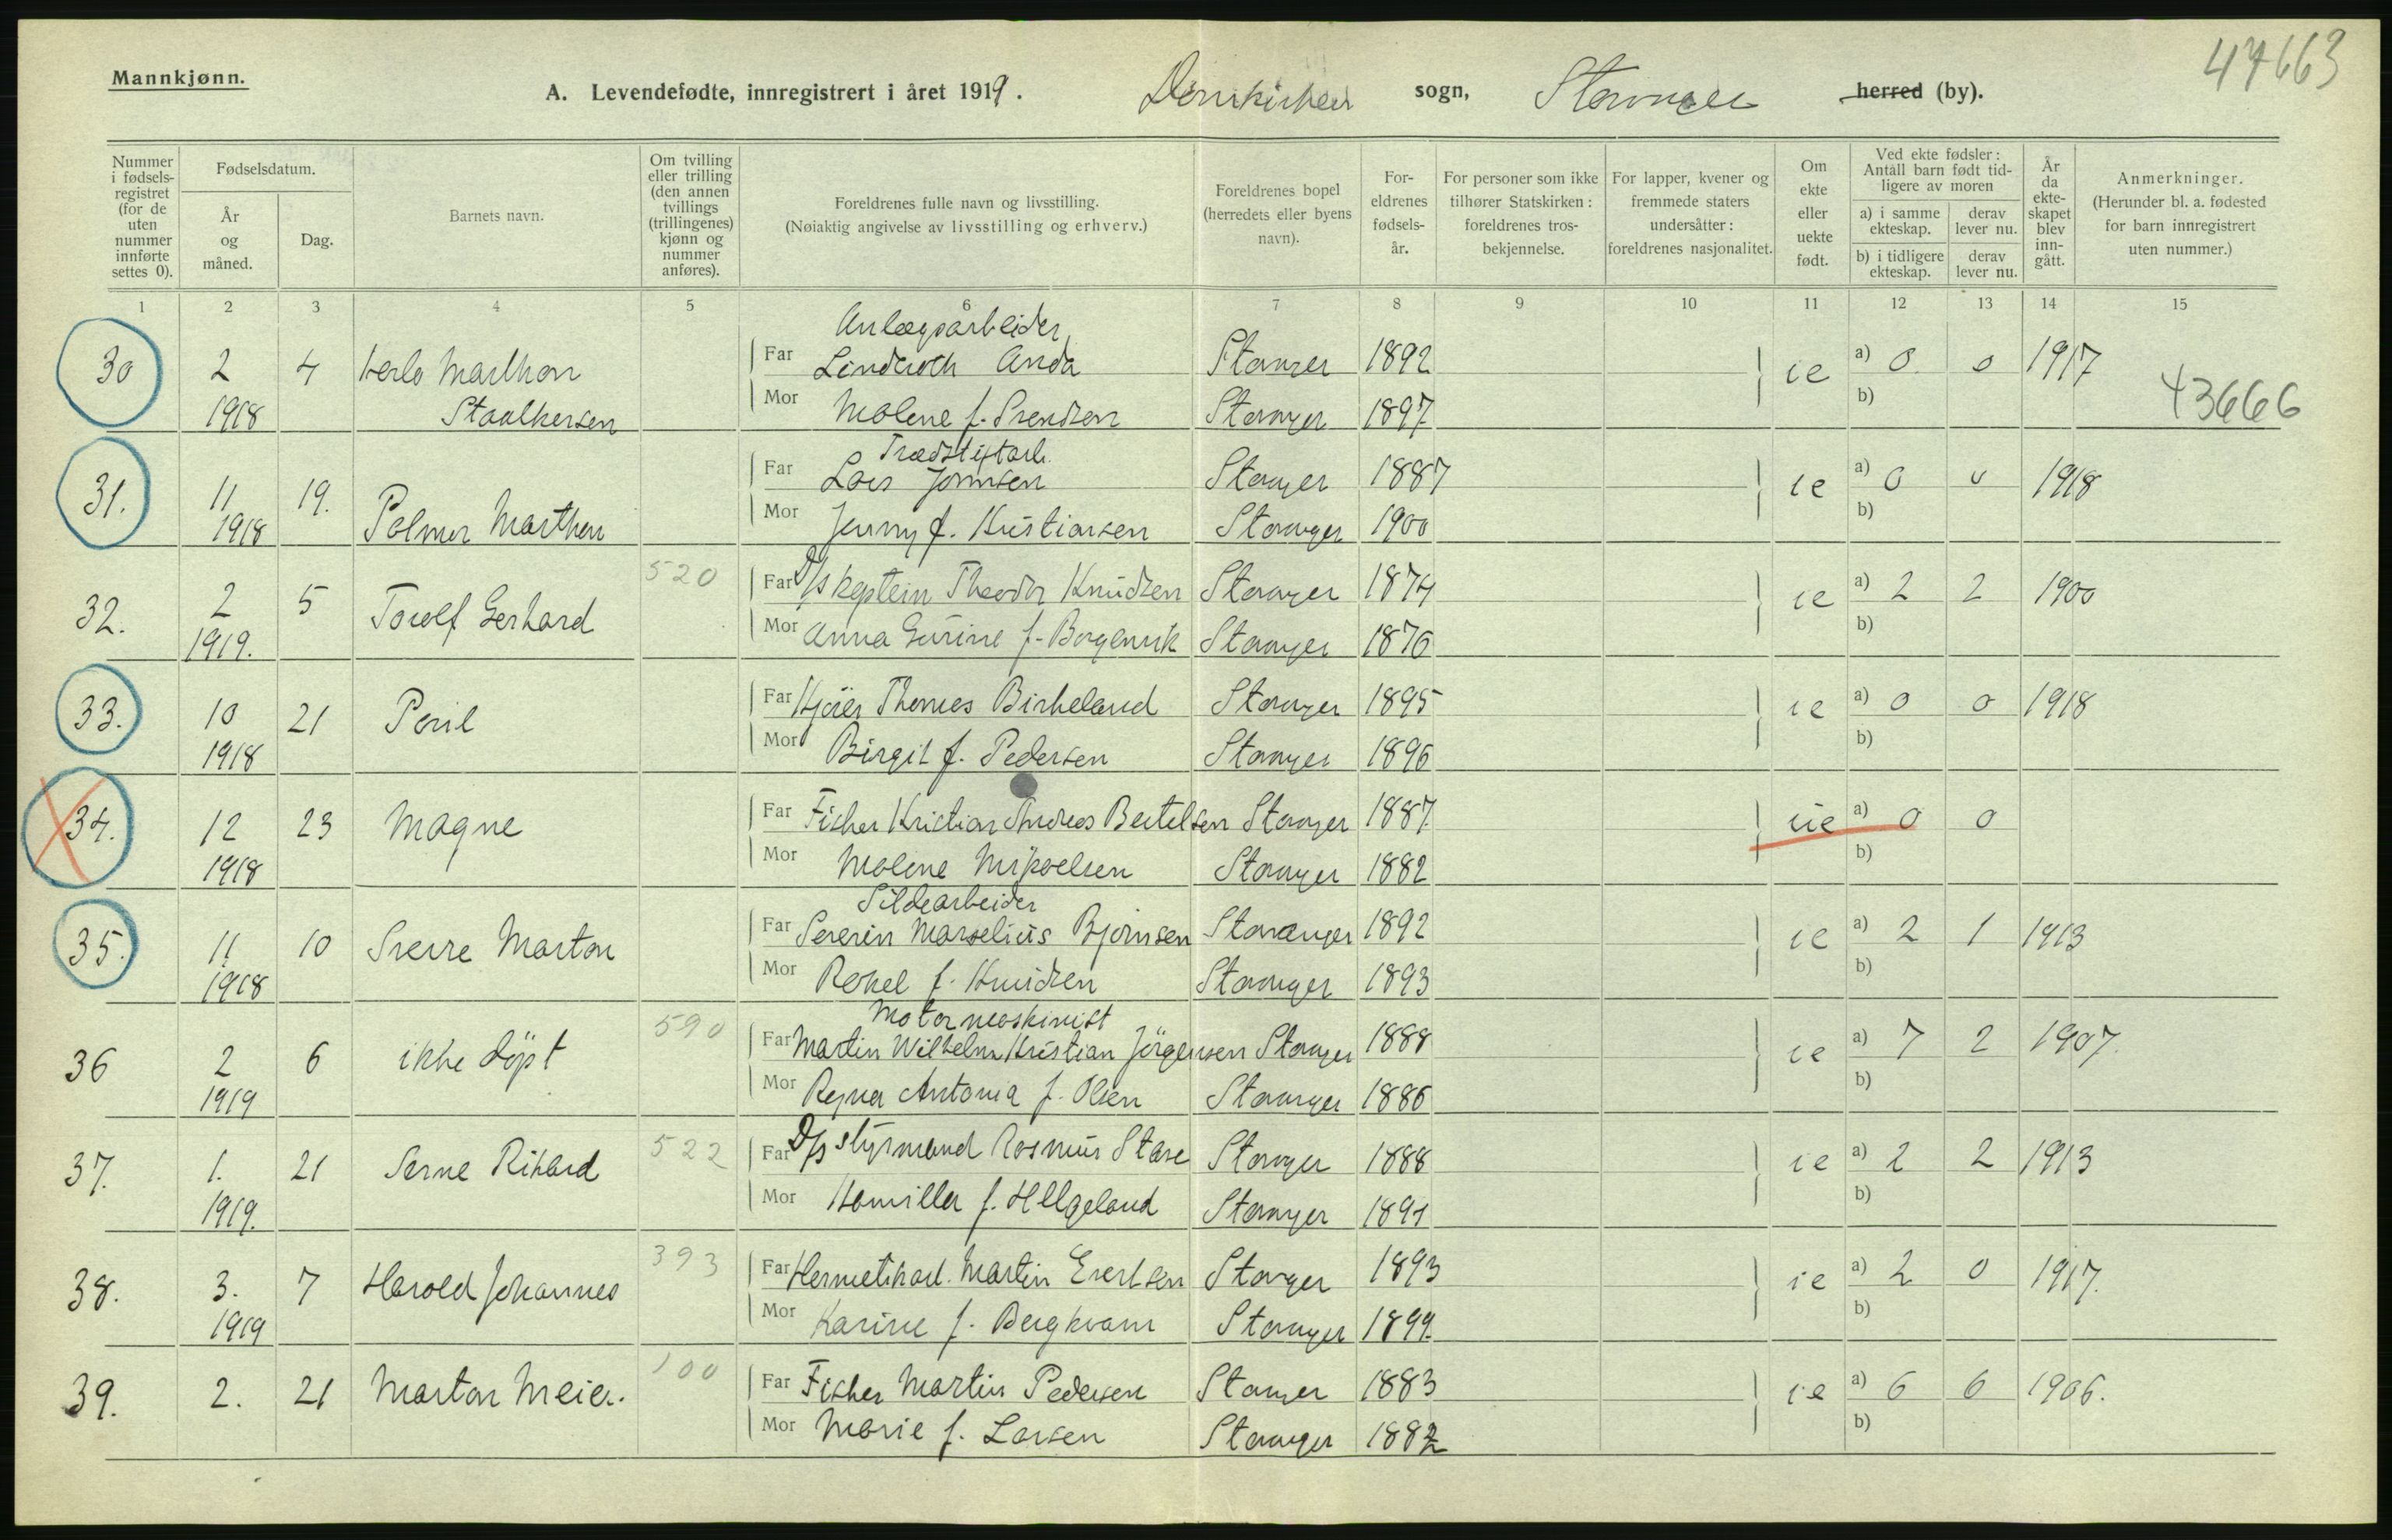 47663
Mannkjønn.
A. Levendefødte, innregistrert i året 1919. Domkirken sogn, Stavanger herred (by).
Nummer i fødselsregistret (for de uten nummer innførte settes 0).
Fødselsdatum.
År og måned.
Dag.
Barnets navn.
Om tvilling eller trilling (den annen tvillings (trillingenes) kjønn og nummer anføres).
Foreldrenes fulle navn og livsstilling.
(Nøiaktig angivelse av livsstilling og erhverv.)
Foreldrenes bopel (herredets eller byens navn).
Foreldrenes fødselsår.
For personer som ikke tilhører Statskirken: foreldrenes trosbekjennelse.
For lapper, kvener og fremmede staters undersåtter: foreldrenes nasjonalitet.
Om ekte eller uekte født.
Ved ekte fødsler: Antall barn født tidligere av moren
a) i samme ekteskap. derav lever nu.
b) i tidligere ekteskap. derav lever nu.
År da ekteskapet blev inngått.
Anmerkninger.
(Herunder bl. a. fødested for barn innregistrert uten nummer.)
1 2 3 4 5 6 7 8 9 10 11 12 13 14 15
Anlægsarbeider
30 2 4 Far Anda Stavanger 1892 ie a) 0 0 1917
1918 Mor Malene f. Svendsen Stavanger 1897 b) 43666
31. 11 19. Far Lars Stavanger 1887 ie a) 0 0 1918
1918 Palmer Marthon Mor Jenny f. Kristiansen Stavanger 1900 b)
32. 2 5 Torolf Gerhard 520 Far D/s kaptein Theodor Knudsen Stavanger 1874 ie a) 2 2 1900
1919. Mor Anna Gurine f. Stavanger 1876 b)
33. 10 21 Far Thomas Birkeland Stavanger 1895 ie a) 0 0 1918
1918 Mor Birgit f. Pedersen Stavanger 1896 b)
34. 12 23 Magne Far Fisker Kristian Andreas Bertelsen Stavanger 1887. uie a) 0 0
1918 Mor Malene Mikaelsen Stavanger 1882 b)
Sildearbeider
35. 11 10 Sverre Marton Far Severin Marselius Bjørnsen Stavanger 1892 ie a) 2 1 1913
1918 Mor Rakel f. Knudsen Stavanger 1893 b)
Motormaskinist
36 2 6 ikke døpt 590 Far Martin Wilhelm Kristian Jørgensen Stavanger 1888 ie a) 7 2 1907.
1919 Mor Ragna Antonia f. Olsen Stavanger 1886 b)
37. 1. 21 Rikard 522 Far D/s styrmand Rasmus Stave Stavanger 1888 ie a) 2 2 1913
1919. Mor Kamilla f. Helgeland Stavanger 1891 b)
38. 3. 7 Harold Johannes 393 Far Hermetikarb. Martin Evertsen Stavanger 1893 ie a) 2 0 1917.
1919 Mor Karine f. Bergkvam Stavanger 1899. b)
39. 2. 21 Marton Meier. 100 Far Fisker Martin Pedersen Stavanger 1883 ie a) 6 6 1906.
Mor Marie f. Larsen Stavanger 1882 b)